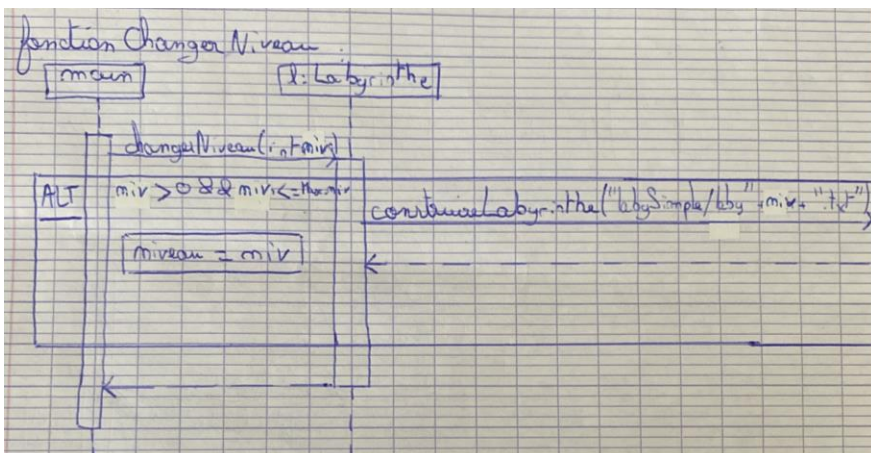 fonction Changer Niveau :
main
l: Labyrinthe
changerNiveau(int niv)
ALT
niv > 0 && niv <=
construireLabyrinthe("labySimple/laby"+niv+".txt")
niveau = niv